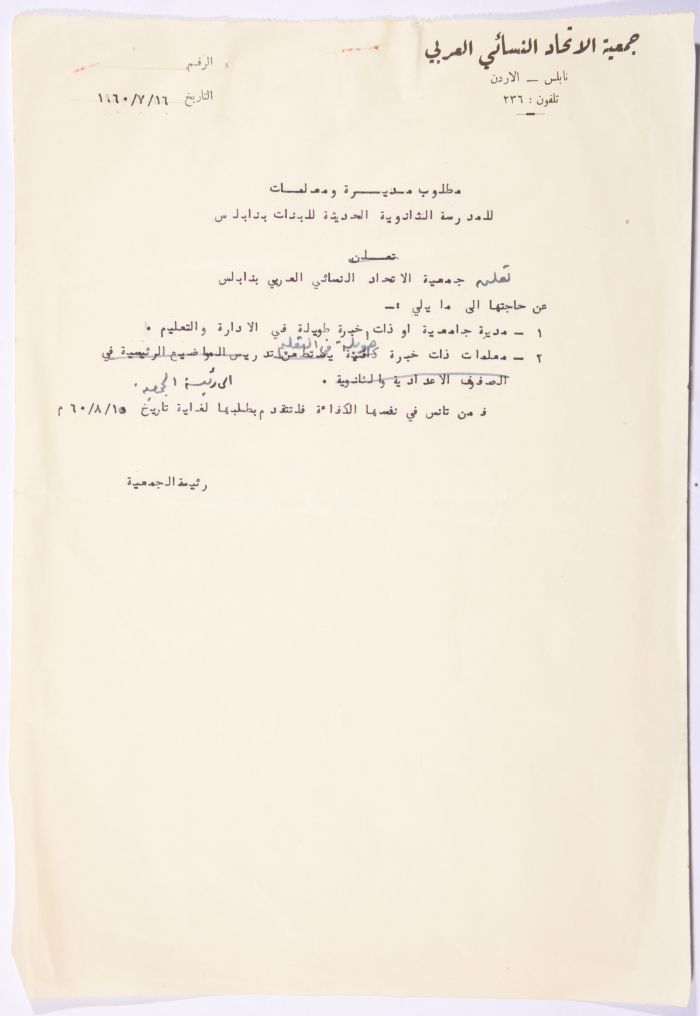 جمعية الاتحاد النسائي العربي
نابلس — الاردن
تلفون : ٢٣٦
الرقم
التاريخ ١٩٦٠/٧/١٦
مطلوب مديـــرة ومعلمـات
للمدرسة الثانوية الحديثة للبنات بنابلس
تعلـن
تعلن جمعية الاتحاد النسائي العربي بنابلس
عن حاجتها الى ما يلي :—
١ – مديرة جامعية او ذات خبرة طويلة في الادارة والتعليم .
طويلة في التعليم
٢ – معلمات ذات خبرة كافية يستطعن تدريس المواضيع الرئيسية في
الصفوف الاعدادية والثانوية .
الى رئيسة الجمعية .
فمن تانس في نفسها الكفاءة فلتتقدم بطلبها لغاية تاريخ ٦٠/٨/١٥ م
رئيسة الجمعية